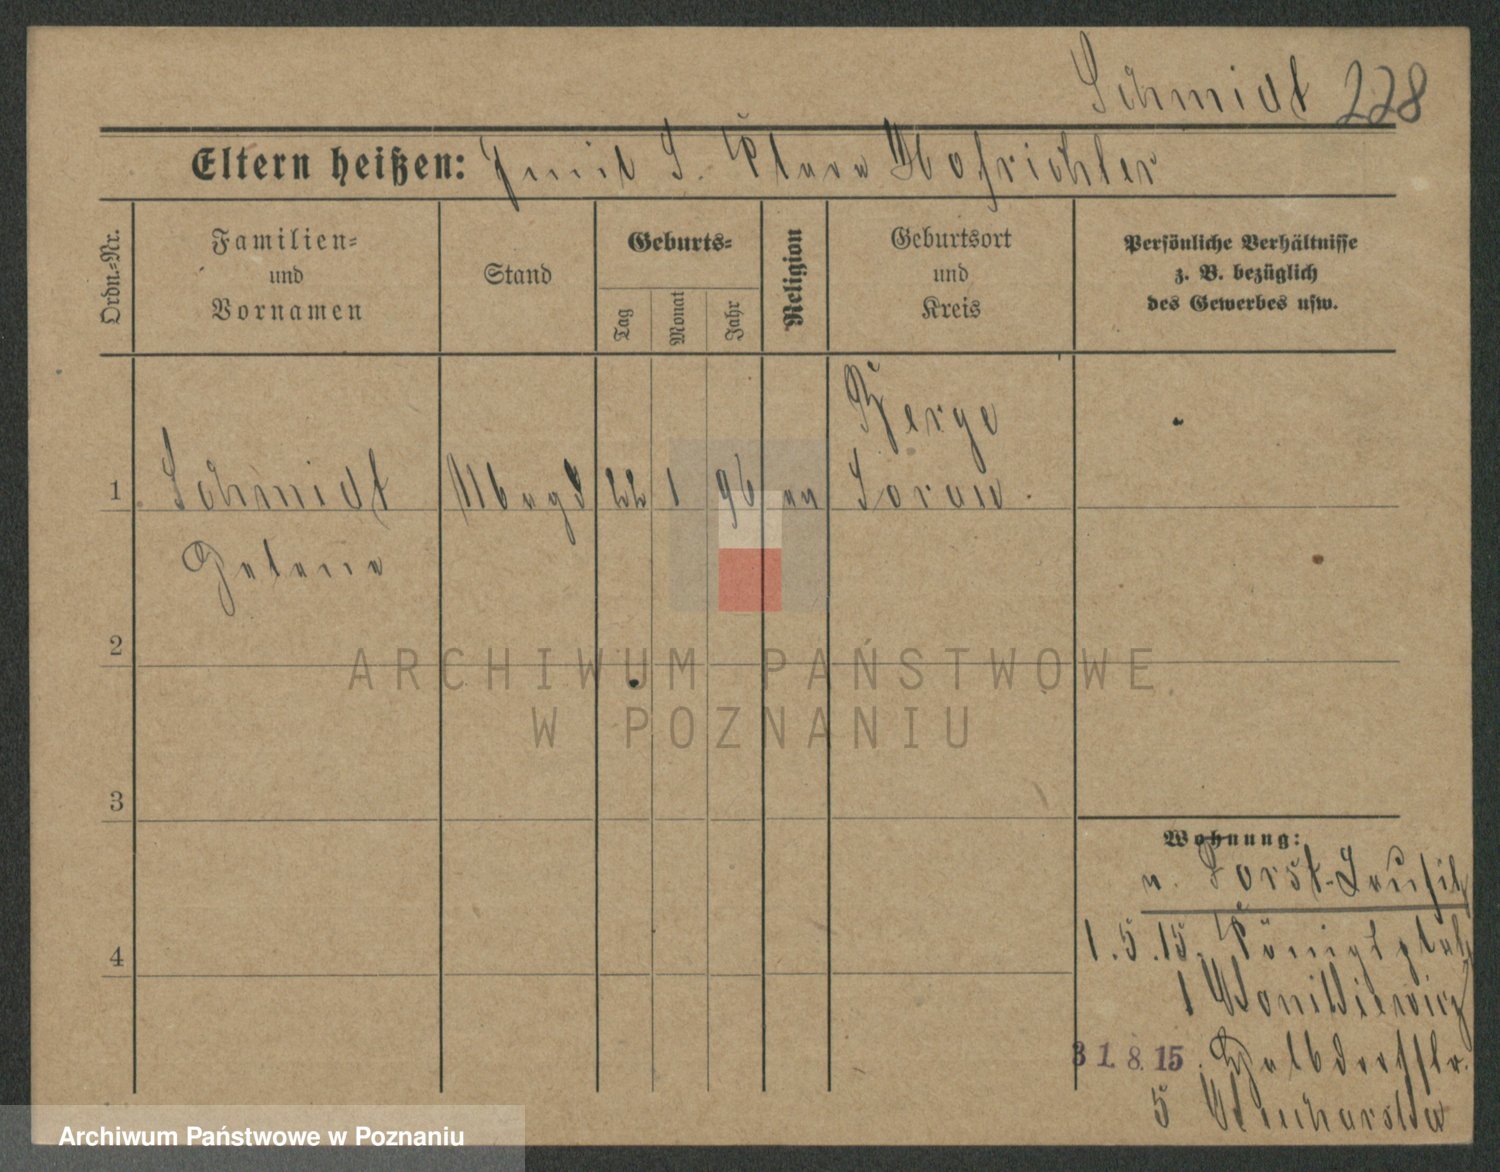 Schmidt 228
Eltern heißen: Emil S. Klara Hofrichter
Ordn.=Nr.
Familien=
und
Vornamen
Stand
Geburts=
Tag
Monat
Jahr
Religion
Geburtsort
und
Kreis
Persönliche Verhältnisse
z. B. bezüglich
des Gewerbes usw.
Berge
1 Schmidt Magd 22 1 96 ev Sorau.
Helene
2
ARCHIWUM PAŃSTWOWE
W POZNANIU
3
Wohnung:
v. Forst-Lausitz
4
1.5.15. Königsplatz
1
31.8.15.
5
Archiwum Państwowe w Poznaniu